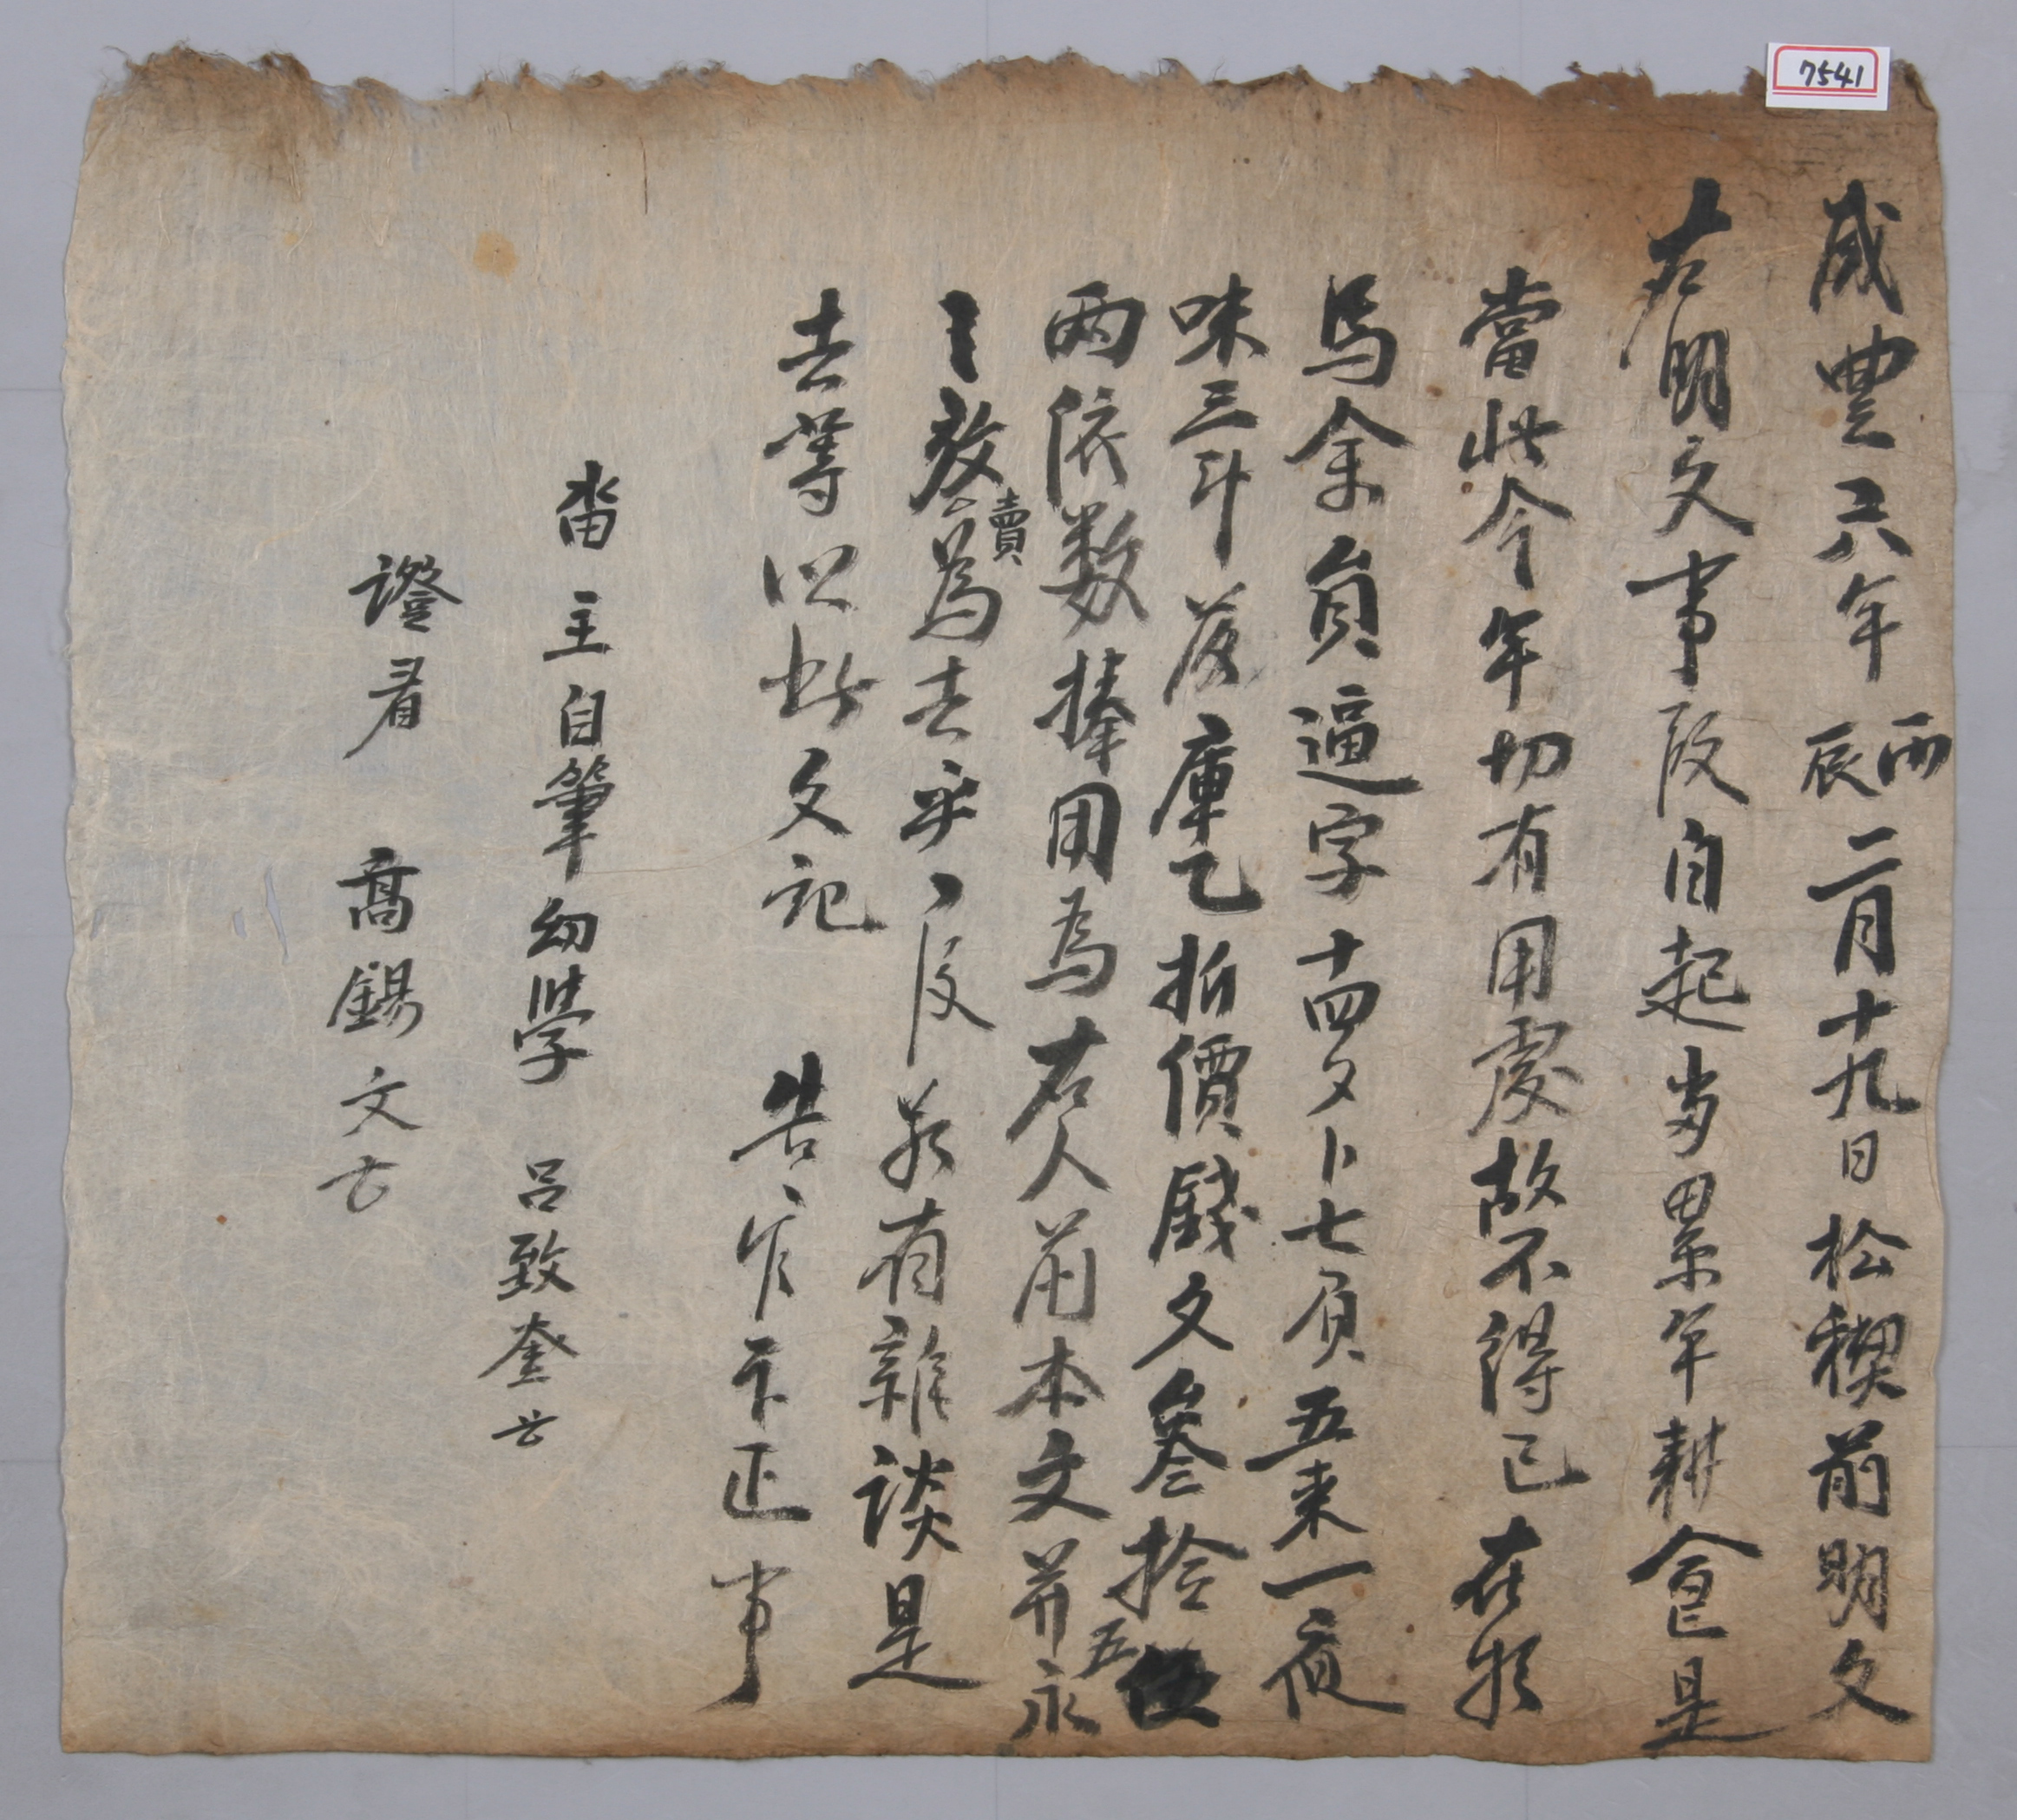 7541
咸豊六年丙辰二月十九日松稧前明文
右明文事段自起畓累年耕食是
當此今年切有用處故不得已在於
馬余員逼字十四夕卜七負五束一夜
味三斗落庫乙折價錢文叁拾伍五
兩依數捧用爲右人前本文并永
永放賣爲去乎日後若有雜談是
去等以此文記 告官卞正事
畓主自筆幼學 呂致奎
證看 高錫文